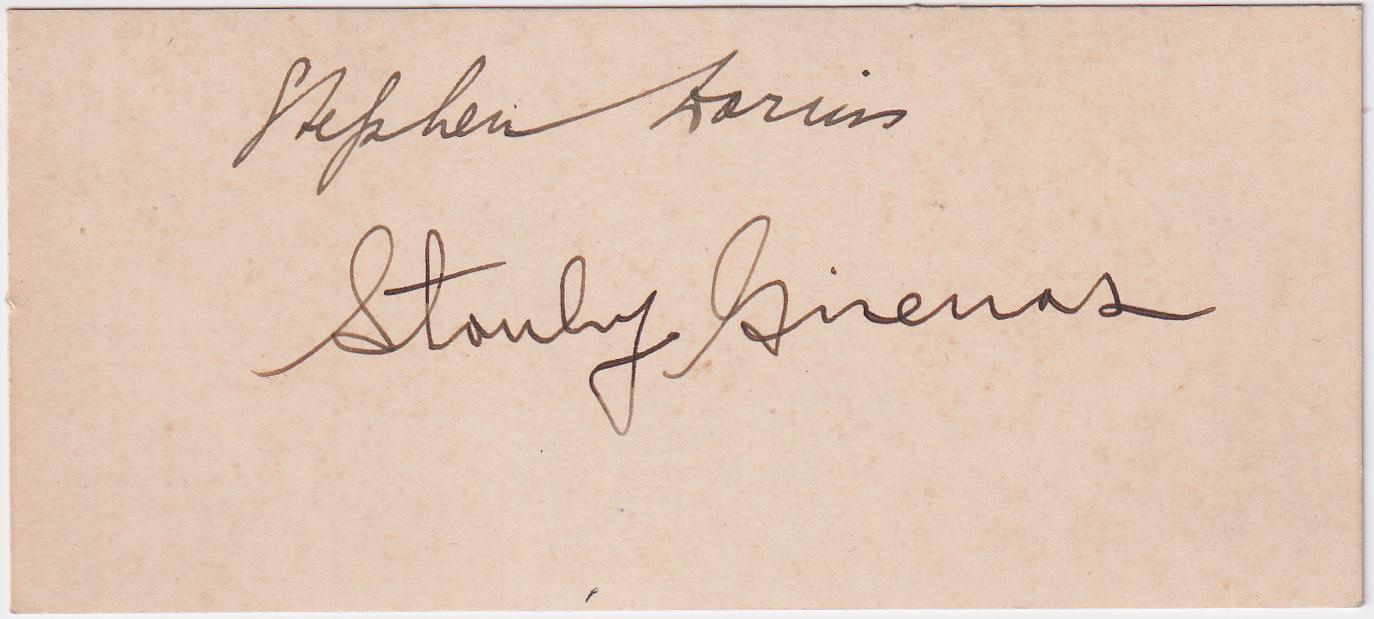 Stephen Darius
Stanley Girenas